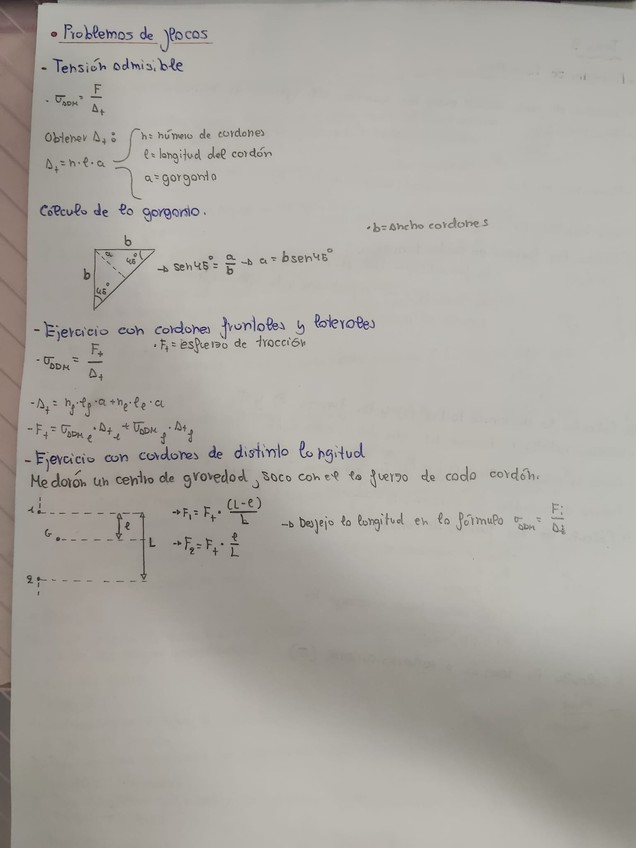 • Problemas de placas
- Tensión admisible
- σADM = F/At
Obtener At:
n = número de cordones
l = longitud del cordón
At = n·l·a
a = garganta
Cálculo de la garganta.
• b = Ancho cordones
b
a 45°
b
45°
→ sen45° = a/b → a = b sen45°
- Ejercicio con cordones frontales y laterales
• Ft = esfuerzo de tracción
- σADM = Ft/At
- At = nf·lf·a + nl·ll·a
- Ft = σADMl·Atl + σADMf·Atf
- Ejercicio con cordones de distinta longitud
Me darán un centro de gravedad, saco con él la fuerza de cada cordón.
1
l
→ F1 = Ft·(L-l)/L
→ Despejo la longitud en la fórmula σADM = Fi/At
G
L
→ F2 = Ft·l/L
2